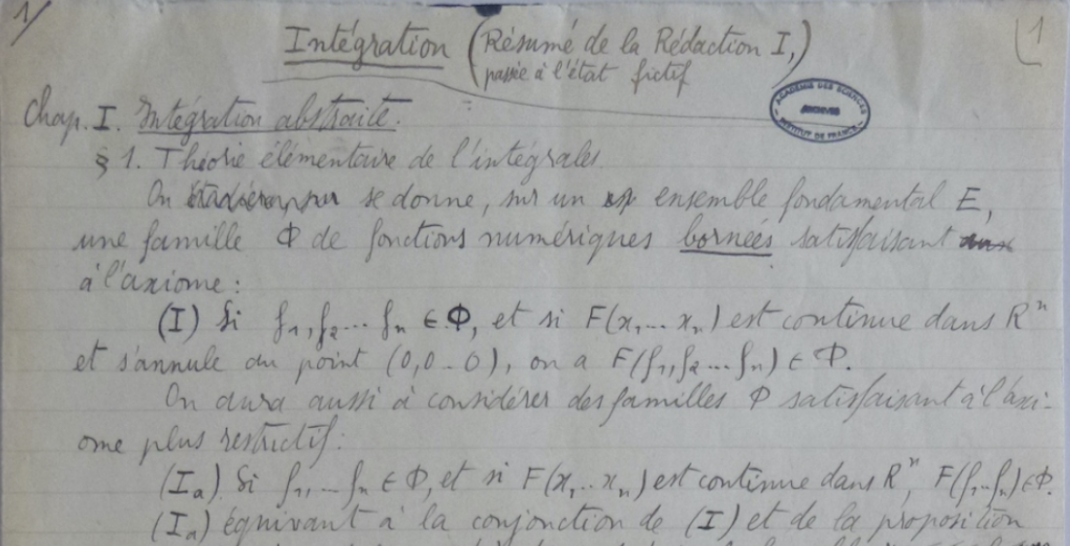 1/
(1
Intégration (Résumé de la Rédaction I,)
passée à l'état fictif
ACADEMIE DES SCIENCES
ARCHIVES
INSTITUT DE FRANCE
Chap. I. Intégration abstraite.
§ 1. Théorie élémentaire de l'intégrales.
On se donne, sur un ensemble fondamental E,
une famille Φ de fonctions numériques bornées satisfaisant
à l'axiome :
(I) Si f₁, f₂ ... fₙ ∈ Φ, et si F(x₁ ... xₙ) est continue dans Rⁿ
et s'annule au point (0,0 - 0), on a F(f₁, f₂ ... fₙ) ∈ Φ.
On aura aussi à considérer des familles Φ satisfaisant à l'axi-
ome plus restrictif :
(Iₐ) Si f₁, ... fₙ ∈ Φ, et si F(x₁ .. xₙ) est continue dans Rⁿ, F(f₁ .. fₙ) ∈ Φ.
(Iₐ) équivaut à la conjonction de (I) et de la proposition